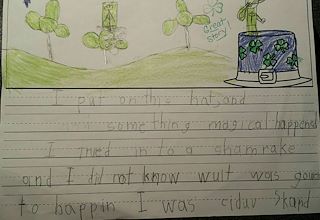 Great
Story!
I put on this hat, and
something magical happened
I trned in to a shamrake
and I did not know wult was goin
to happin I was ciduv Skand